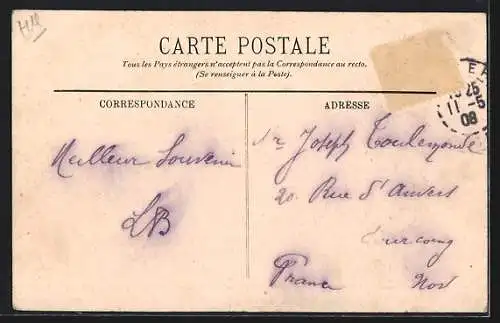 HR
CARTE POSTALE
Tous les Pays étrangers n'acceptent pas la Correspondance au recto.
(Se renseigner à la Poste).
CORRESPONDANCE
ADRESSE
25
11 - 5
08
Meilleur Souvenir
LB
Mr Joseph Toulemonde
20 Rue d'Anvers
Tourcoing
France Nord